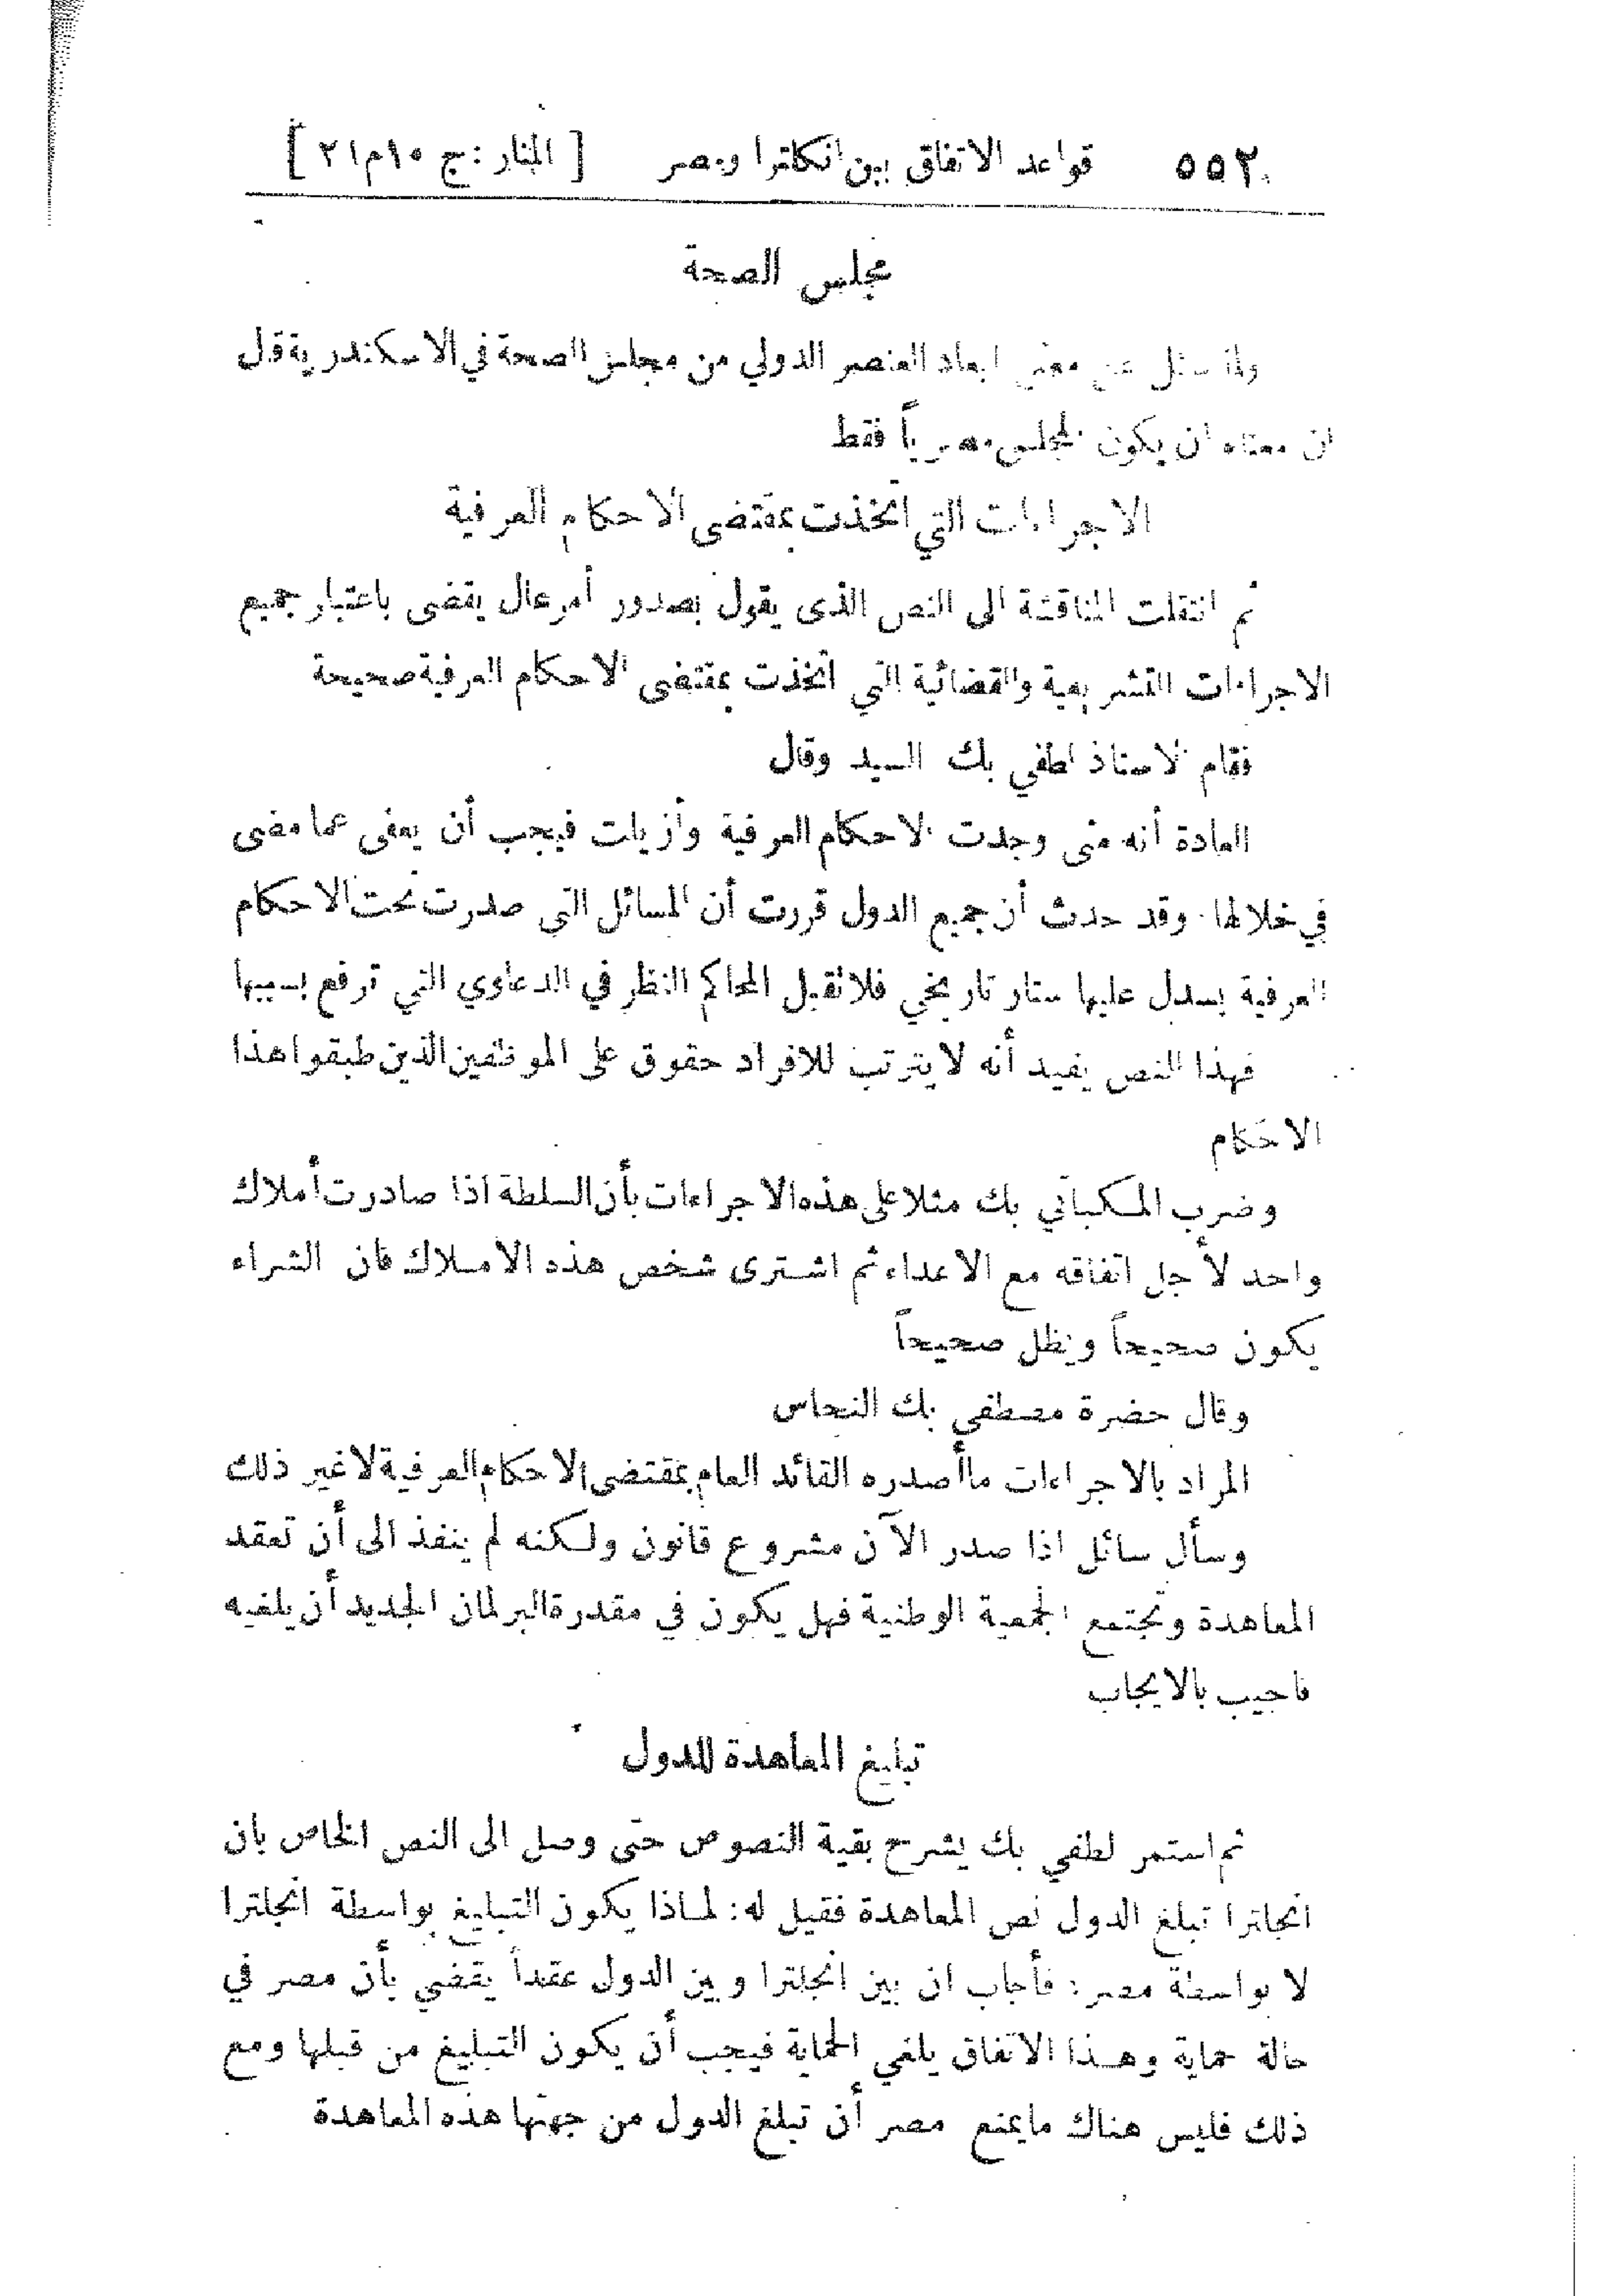 ٥٥٢ قواعد الاتفاق بين انكلترا ومصر [ المنار : ج ١٠ م ٢١ ]
مجلس الصحة
ولما سئل عن معنى ابعاد العنصر الدولي من مجلس الصحة في الاسكندرية قال
ان معناه ان يكون المجلس مصرياً فقط
الاجراءات التي اتخذت بمقتضى الاحكام العرفية
ثم انتقلت المناقشة الى النص الذى يقول بصدور أمر عال يقضى باعتبار جميع
الاجراءات التشريعية والقضائية التي اتخذت بمقتضى الاحكام العرفية صحيحة
فقام الاستاذ لطفي بك السيد وقال
العادة أنه متى وجدت الاحكام العرفية وأزيلت فيجب أن يعفى عما مضى
في خلالها. وقد حدث أن جميع الدول قررت أن المسائل التي صدرت تحت الاحكام
العرفية يسدل عليها ستار تاريخي فلا تقبل المحاكم النظر في الدعاوي التي ترفع بسببها
فهذا النص يفيد أنه لا يترتب للافراد حقوق على الموظفين الذين طبقوا هذا
الاحكام
وضرب المكباتي بك مثلا على هذه الاجراءات بأن السلطة اذا صادرت أملاك
واحد لأجل اتفاقه مع الاعداء ثم اشترى شخص هذه الاملاك فان الشراء
يكون صحيحاً ويظل صحيحاً
وقال حضرة مصطفى بك النحاس
المراد بالاجراءات ما أصدره القائد العام بمقتضى الاحكام العرفية لا غير ذلك
وسأل سائل اذا صدر الآن مشروع قانون ولكنه لم ينفذ الى أن تعقد
المعاهدة وتجتمع الجمعية الوطنية فهل يكون في مقدرة البرلمان الجديد أن يلغيه
فاجيب بالايجاب
تبليغ المعاهدة للدول
ثم استمر لطفي بك يشرح بقية النصوص حتى وصل الى النص الخاص بان
انجلترا تبلغ الدول نص المعاهدة فقيل له: لماذا يكون التبليغ بواسطة انجلترا
لا بواسطة مصر: فأجاب ان بين انجلترا وبين الدول عقداً يقضي بأن مصر في
حالة حماية وهذا الاتفاق يلغي الحماية فيجب أن يكون التبليغ من قبلها ومع
ذلك فليس هناك ما يمنع مصر أن تبلغ الدول من جهتها هذه المعاهدة